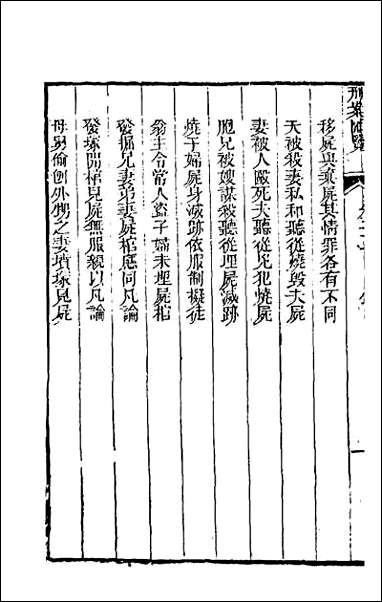 移屍與棄屍其情罪各有不同
夫被殺妻私和聽從燒毀夫屍
妻被人毆死夫聽從兇犯燒屍
胞兄被嫂謀殺聽從埋屍滅跡
燒子婦屍身滅跡依服制擬徒
翁主令常人盜子婦未埋屍棺
發掘兄妻弟妻屍棺應同凡論
發塚開棺見屍無服親以凡論
母舅偷刨外甥之妻墳塚見屍